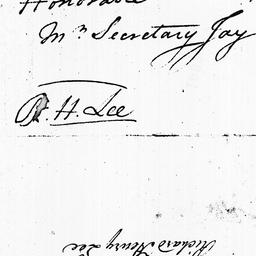 Honorable
Mr. Secretary Jay
R. H. Lee
Richard Henry Lee